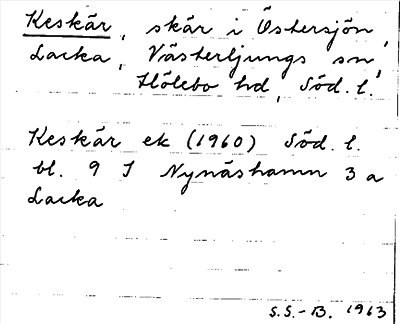 Keskär, skär i Östersjön,
Lacka, Västerljungs sn,
Hölebo hd, Söd. l.
Keskär ek (1960) Söd. l.
bl. 9 I Nynäshamn 3 a
Lacka
S.S.-B. 1963